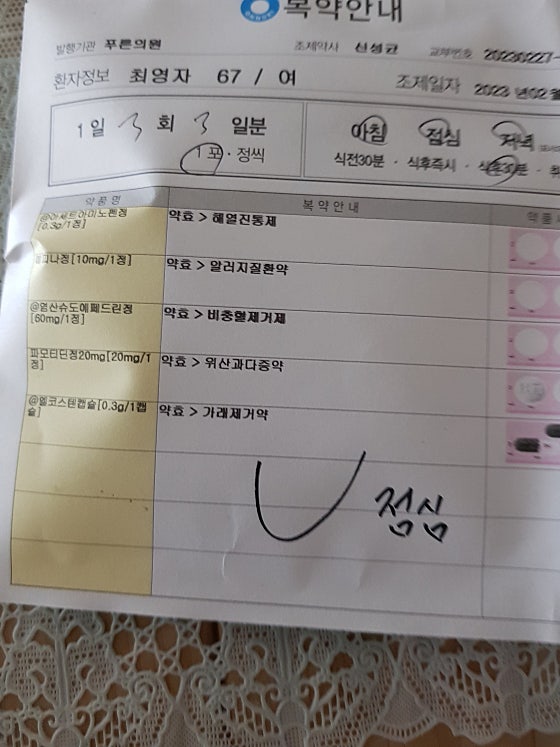 복약안내
발행기관 푸른의원 조제약사 신성균 교부번호 20230227-
환자정보 최영자 67 / 여 조제일자 2023 년02 월
1일 3 회 3 일분 아침 점심 저녁
1포 · 정씩 식전30분 · 식후즉시 · 식후30분 ·
약품명 복약안내 약품
@아세트아미노펜정 약효 > 해열진통제
[0.3g/1정]
[10mg/1정] 약효 > 알러지질환약
@염산슈도에페드린정 약효 > 비충혈제거제
[60mg/1정]
파모티딘정20mg[20mg/1 약효 > 위산과다증약
정]
@엘코스텐캡슐[0.3g/1캡 약효 > 가래제거약
슐]
점심